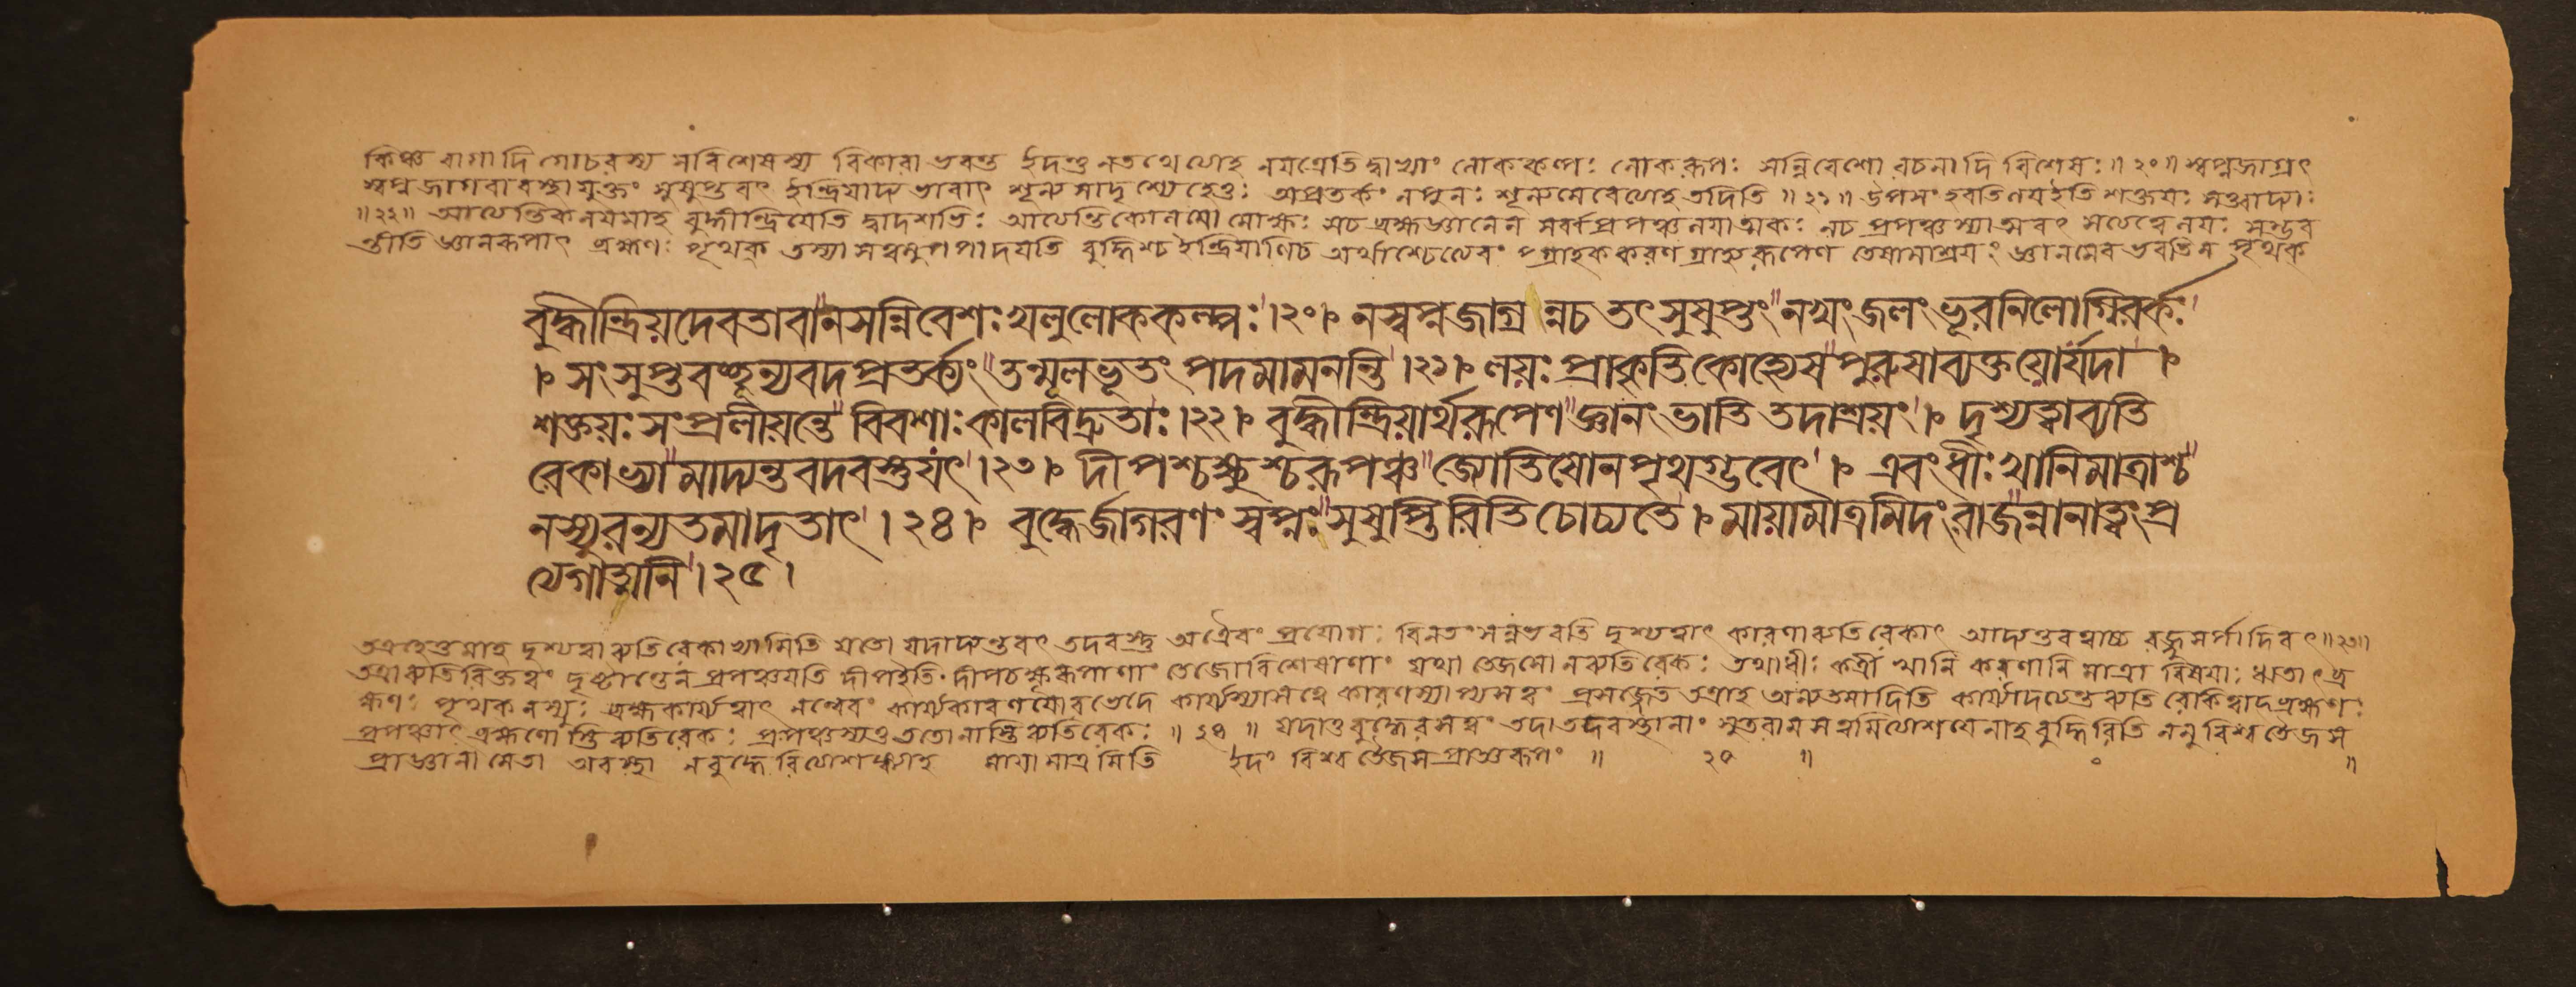 কিঞ্চ বাগাদি গোচরস্য সবিশেষস্য বিকারা ভবন্ত ইদন্তু নতথেত্যাহ নযত্রেতি দ্বাভ্যাং লোককল্পঃ লোকরূপঃ সন্নিবেশো রচনাদি বিশেষঃ॥২০॥ স্বপ্নজাগ্রৎ
স্বপ্ন জাগরাবস্থাযুক্তং সুষুপ্তবৎ ইন্দ্রিযাদ্য ভাবাৎ শূন্য সাদৃশ্যে হেতুঃ অপ্রতর্ক্যং নপুনঃ শূন্যমেবেত্যাহ তদিতি॥২১॥ উপসংহরতিলযইতি শক্তযঃ সত্ত্বাদ্যাঃ
॥২২॥ আত্যন্তিক লযমাহ বুদ্ধীন্দ্রিযেতি দ্বাদশভিঃ আত্যন্তিকোলযো মোক্ষঃ সচ ব্রহ্মজ্ঞানেন সর্ব্বপ্রপঞ্চলযাত্মকঃ নচ প্রপঞ্চস্যাত্মবৎ সত্যত্বে লযঃ সম্ভব
তীতি জ্ঞানরূপাৎ ব্রহ্মণঃ পৃথক্ তস্যাসত্বমুপপাদযতি বুদ্ধিশ্চ ইন্দ্রিযাণিচ অর্থাশ্চেত্যেবং গ্রাহককরণ গ্রাহ্যরূপেণ তেষামাশ্রযং জ্ঞানমেব ভবতি ন পৃথক্
বুদ্ধীন্দ্রিয়দেবতাবানসন্নিবেশঃখলুলোককল্পঃ।২০। নস্বপ্নজাগ্রন্নচতৎসুষুপ্তুংনখংজলংভূরনিলোগ্নিরর্কঃ
। সংসুপ্তবচ্ছূন্যবদপ্রতর্ক্যংতন্মূলভূতং পদমামনন্তি।২১। লয়ঃপ্রাকৃতিকোহ্যেষপুরুষাব্যক্তয়োর্যদা।
শক্তয়ঃসংপ্রলীয়ন্তেবিবশাঃকালবিদ্রুতাঃ।২২। বুদ্ধীন্দ্রিয়ার্থরূপেণজ্ঞানংভাতিতদাশ্রয়ং। দৃশ্যত্বাব্যতি
রেকাভ্যামাদ্যন্তবদবস্তুযৎ।২৩। দীপশ্চক্ষুশ্চরূপঞ্চজ্যোতিষোনপৃথগ্ভবেৎ। এবংধীঃখানিমাত্রাশ্চ
নস্যুরন্যতমাদৃতাৎ।২৪। বুদ্ধের্জাগরণংস্বপ্নঃসুষুপ্তিরিতিচোচ্যতে। মায়ামাত্রমিদংরাজন্নানাত্বংপ্র
ত্যেগাত্মনি।২৫।
তত্রহেতুমাহ দৃশ্যত্বাব্যতিরেকাভ্যামিতি যতো যদাদ্যন্তবৎ তদবস্তু অত্রৈবং প্রযোগঃ বিমতং সন্নভবতি দৃশ্যত্বাৎ কারণাব্যতিরেকাৎ আদ্যন্তবত্বাচ্চ রজ্জুসর্পাদিবৎ॥২৩॥
তত্রাব্যতিরিক্তত্বং দৃষ্টান্তেন প্রপঞ্চযতি দীপইতি দীপচক্ষূরূপাণাং তেজোবিশেষাণাং যথা তেজসো নব্যতিরেকঃ তথাধীঃ কর্ত্রী খানি করণানি মাত্রা বিষযাঃ ঋতাৎ ব্র
হ্মণঃ পৃথক নস্যুঃ ব্রহ্মকার্য্যত্বাৎ নন্বেবং কার্য্যকারণযোরভেদে কার্য্যস্যাসত্বে কারণস্যাপ্যসত্বং প্রসজ্জেত তত্রাহ অন্যতমাদিতি কার্য্যাদত্যন্তব্যতিরেকিত্বাদ্ব্রহ্মণঃ
প্রপঞ্চাৎ ব্রহ্মণোস্তি ব্যতিরেকঃ প্রপঞ্চস্যতু ততো নাস্তি ব্যতিরেকঃ॥২৪॥ যদাতু বুদ্ধেরসত্বং তদাতদবস্থানাং সুতরামসত্বমিত্যাশযেনাহ বুদ্ধিরিতি ননু বিশ্ব তৈজস
প্রাজ্ঞানা মেতা অবস্থা নবুদ্ধেরিত্যাশঙ্ক্যাহ মাযামাত্র মিতি ইদং বিশ্ব তৈজস প্রাজ্ঞরূপং॥ ২৫॥ ॥